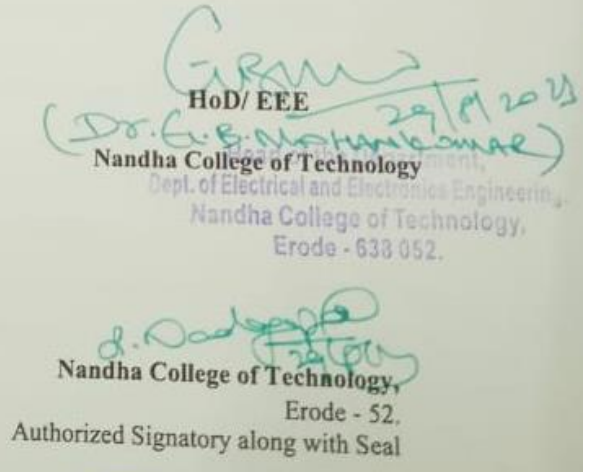 HoD/ EEE
29/8/2023
(Dr. G.B. MOHANKUMAR)
Nandha College of Technology
Head of the Department,
Dept. of Electrical and Electronics Engineering,
Nandha College of Technology,
Erode - 638 052.
Nandha College of Technology,
Erode - 52.
Authorized Signatory along with Seal